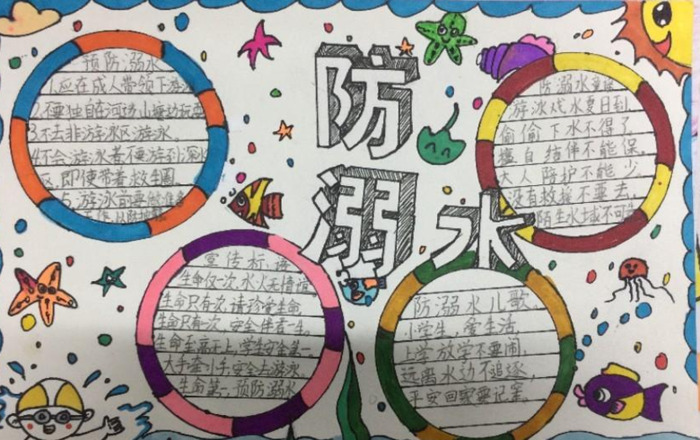 防
溺水
预防溺水
1.应在成人带领下游泳
2.不要独自在河边、山塘边玩耍
3.不去非游泳区游泳
4.不会游泳者,不要游到深水
区,即使带着救生圈
5.游泳前要做准备
防溺水童谣
游泳戏水夏日到,
偷偷下水不得了,
擅自结伴不能保,
大人陪护不能少,
没有救援不要去,
陌生水域不可
宣传标语
生命仅一次,水火无情
生命只有一次,请珍爱生命
生命只有一次,安全伴君一生
生命至高无上,学生安全第一
大手牵小手,安全去游泳
生命第一,预防溺水
防溺水儿歌
小学生,爱生活,
上学放学不要闹,
远离水边不追逐,
平安回家要记牢。